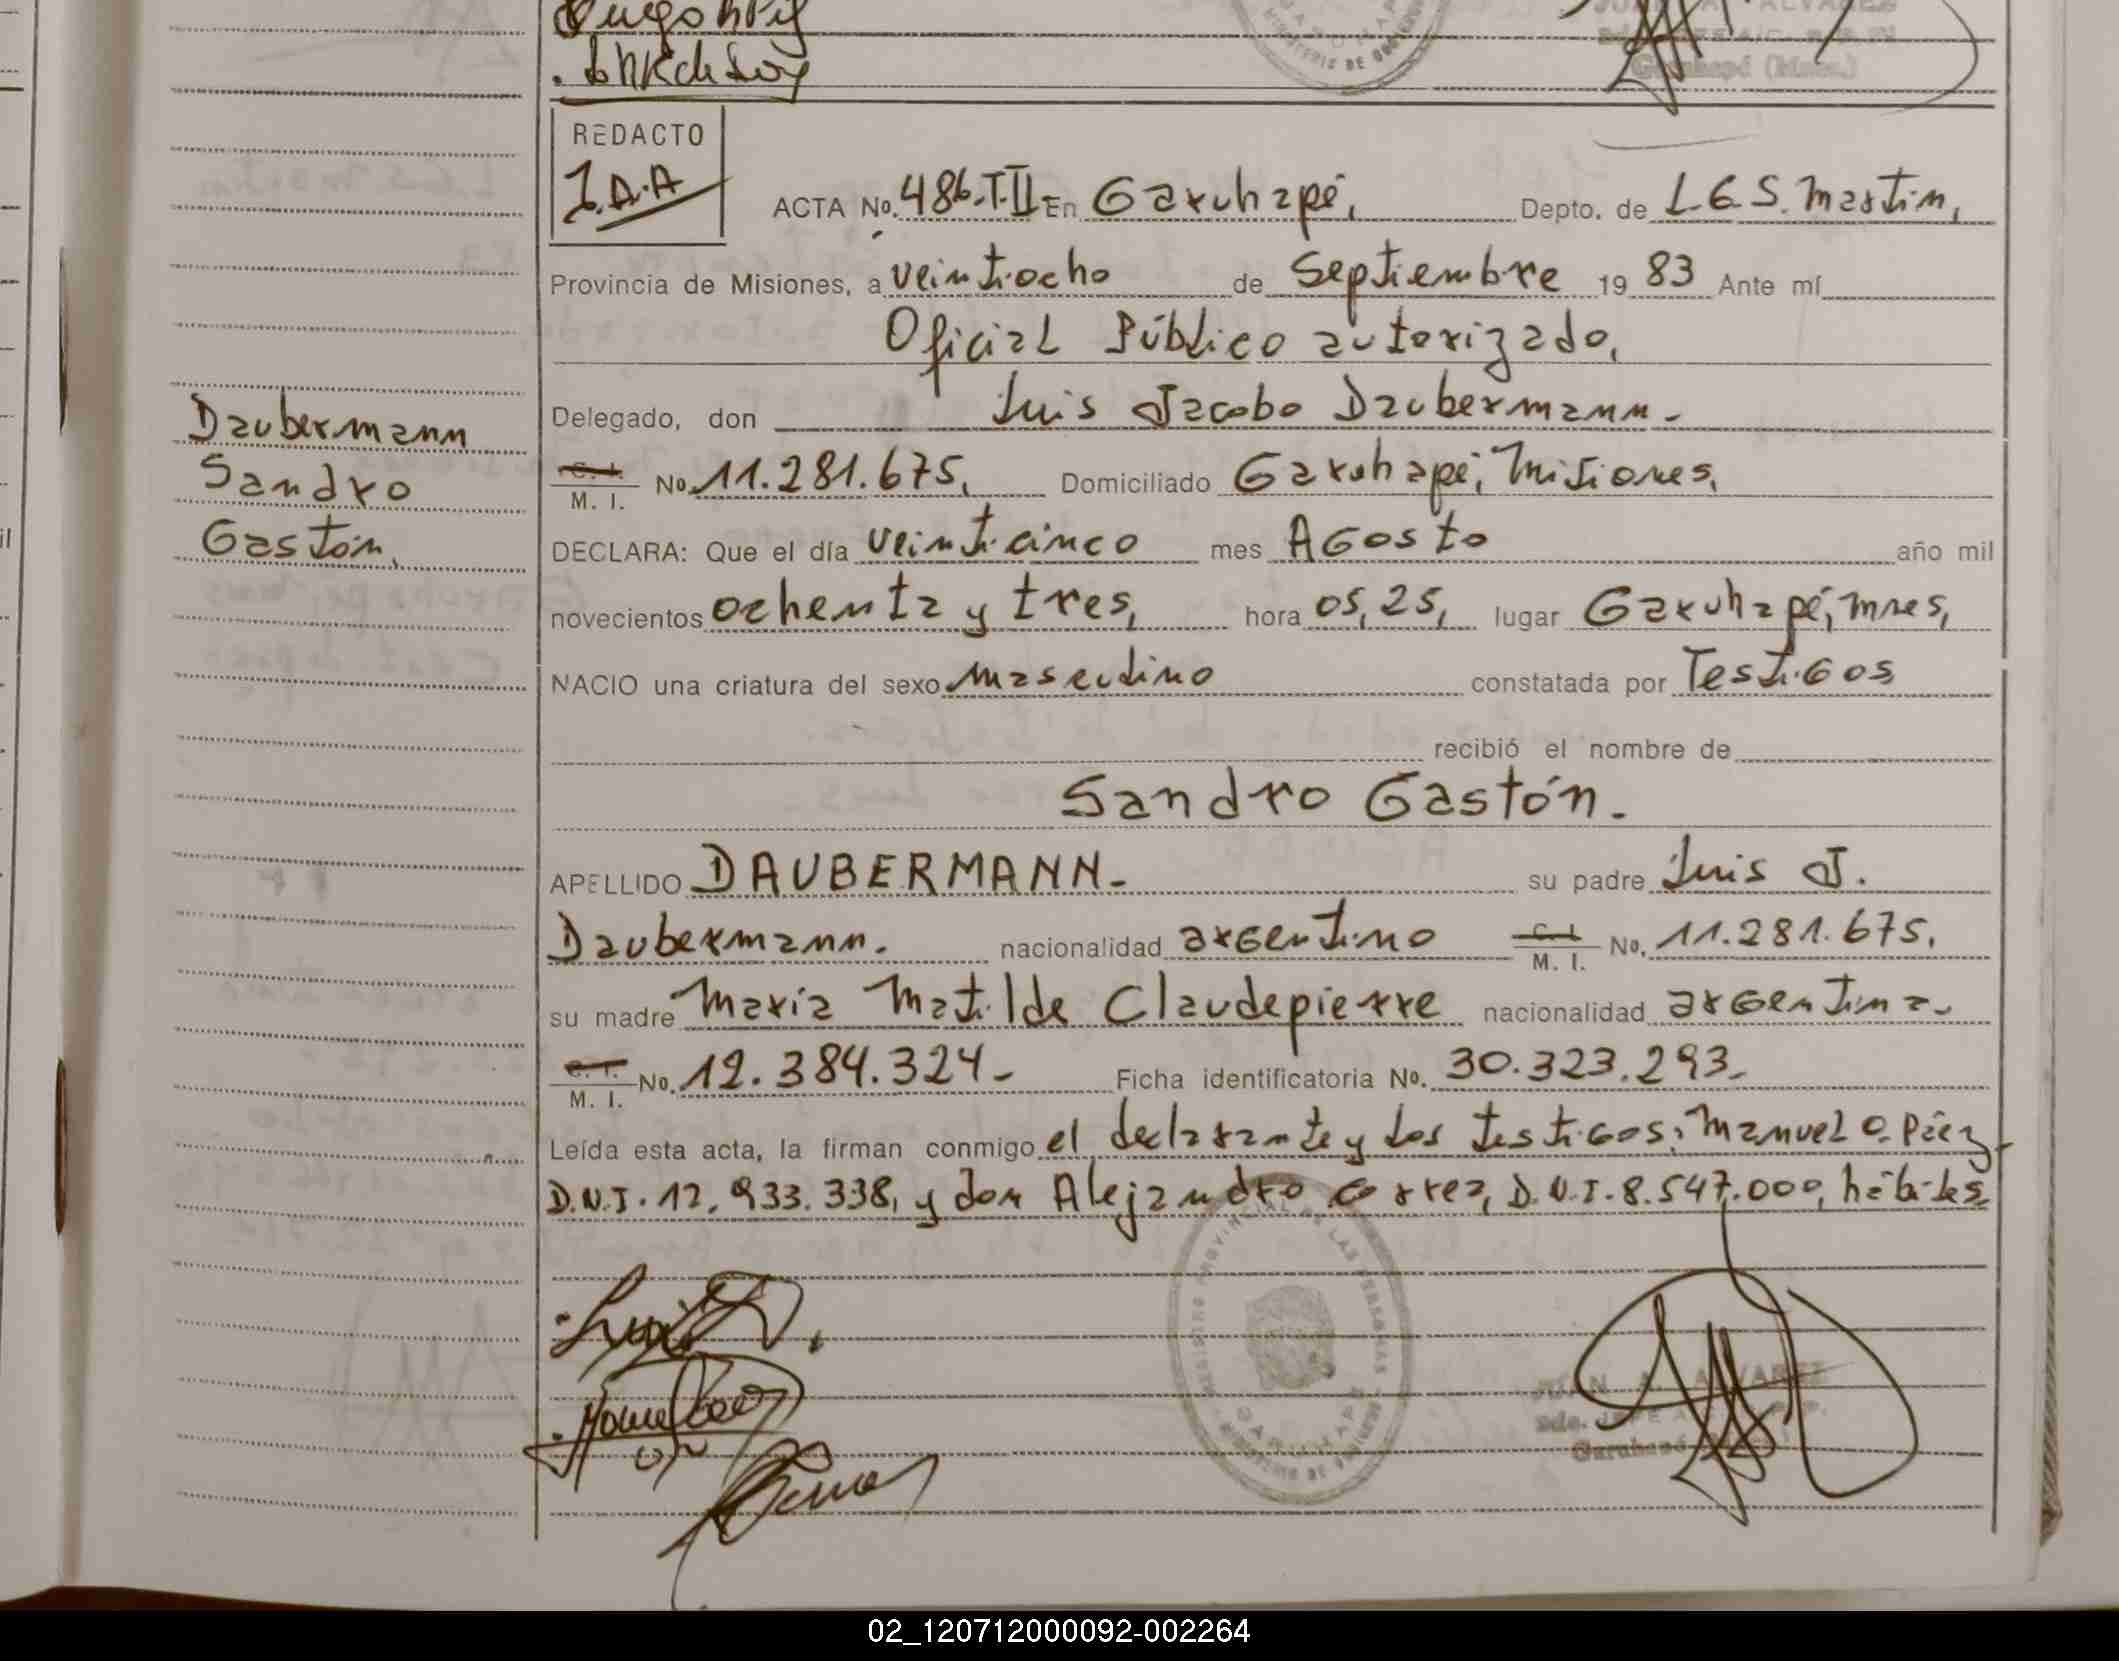 REDACTO
J.A.A
ACTA No. 486.T.II En Garuhapé, Depto. de L.G.S. Martin,
Provincia de Misiones, a veintiocho de Septiembre 19 83 Ante mí
Oficial Público autorizado,
Delegado, don Luis Jacobo Daubermann.-
C. I.
M. I. No. 11.281.675, Domiciliado Garuhapé, Misiones,
DECLARA: Que el día veinticinco mes Agosto año mil
novecientos ochenta y tres, hora 05,25, lugar Garuhapé, Mnes,
NACIO una criatura del sexo masculino constatada por Testigos
recibió el nombre de
Sandro Gastón.
APELLIDO DAUBERMANN.- su padre Luis J.
Daubermann. nacionalidad argentino C. I. M. I. No. 11.281.675,
su madre Maria Matilde Claudepierre nacionalidad argentina.
C. I.
M. I. No. 12.384.324- Ficha identificatoria No. 30.323.293-
Leída esta acta, la firman conmigo el declarante y los testigos, Manuel O. Páez
D.N.I. 12.933.338, y don Alejandro Correa, D.N.I. 8.547.000, hábiles
Daubermann
Sandro
Gastón,
REGISTRO PROVINCIAL DE LAS PERSONAS
GARUHAPE
MINISTERIO DE GOBIERNO
JUAN A. ALVAREZ
Garuhapé
02_120712000092-002264